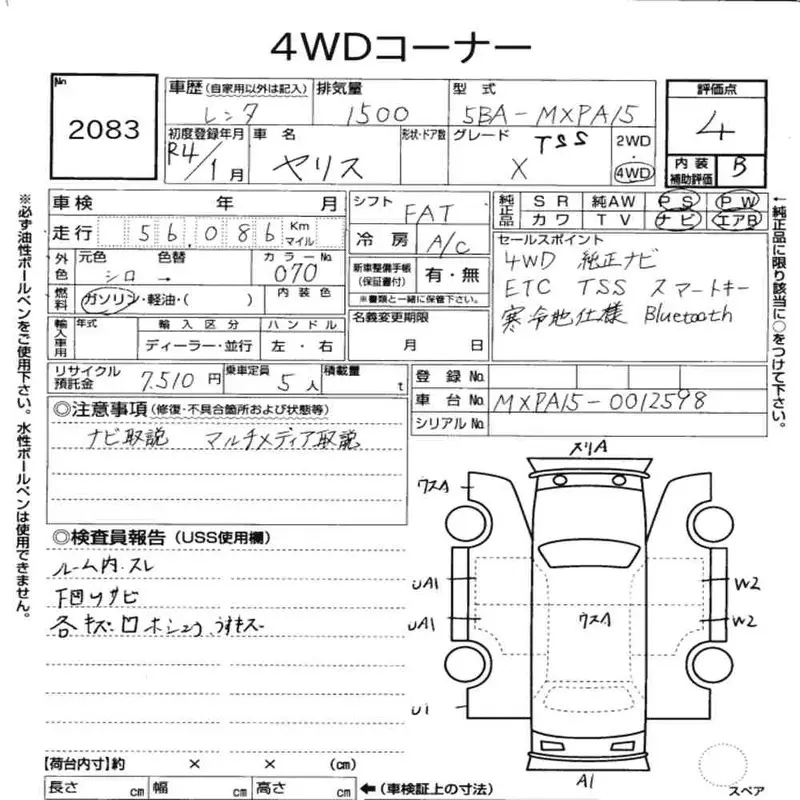 4WDコーナー
No 2083
車歴(自家用以外は記入) レンタ
排気量 1500
型式 5BA-MXPA15
評価点 4
初度登録年月 R4/1月
車名 ヤリス
形状・ドア数
グレード X TSS
2WD
4WD
内装補助評価 B
車検 年 月
走行 56,086 Km マイル
外色 元色 シロ 色替 → カラーNo. 070
燃料 ガソリン・軽油・( ) 内装色
輸入車用 年式 輸入区分 ハンドル
ディーラー・並行 左・右
リサイクル預託金 7,510円 乗車定員 5人 積載量 t
シフト FAT
冷房 A/C
新車整備手帳(保証書付) 有・無
※書類と一緒に保管下さい。
名義変更期限
月 日
純正品 SR 純AW PS PW
カワ TV ナビ エアB
セールスポイント
4WD 純正ナビ
ETC TSS スマートキー
寒冷地仕様 Bluetooth
登録No.
車台No. MXPA15-0012598
シリアルNo.
※必ず油性ボールペンをご使用下さい。水性ボールペンは使用できません。
←純正品に限り該当に○をつけて下さい。
◎注意事項(修復・不具合箇所および状態等)
ナビ取説 マルチメディア取説
◎検査員報告(USS使用欄)
ルーム内スレ
下回りサビ
各キズ
うすキズ
ウスA
UA1
UA1
U1
ウスA
W2
W2
A1
スペア
【荷台内寸】約 × × (cm)
長さ cm 幅 cm 高さ cm ←(車検証上の寸法)